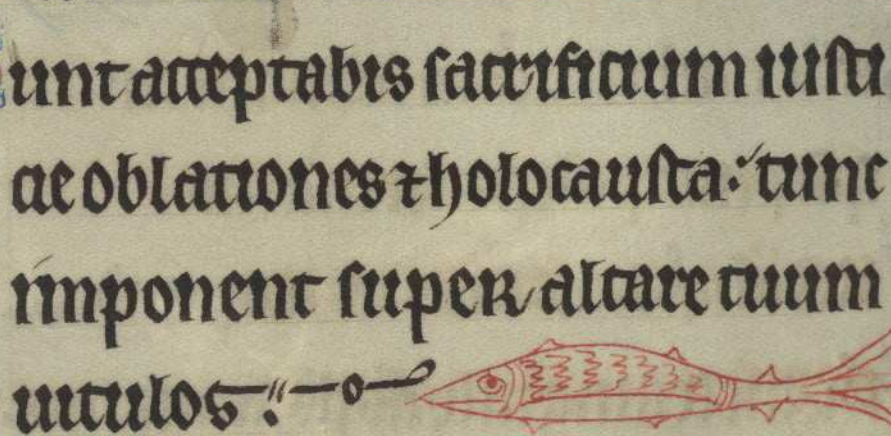 unt acceptabis sacrificium iusti
cie oblationes ⁊ holocausta: tunc
imponent super altare tuum
uitulos